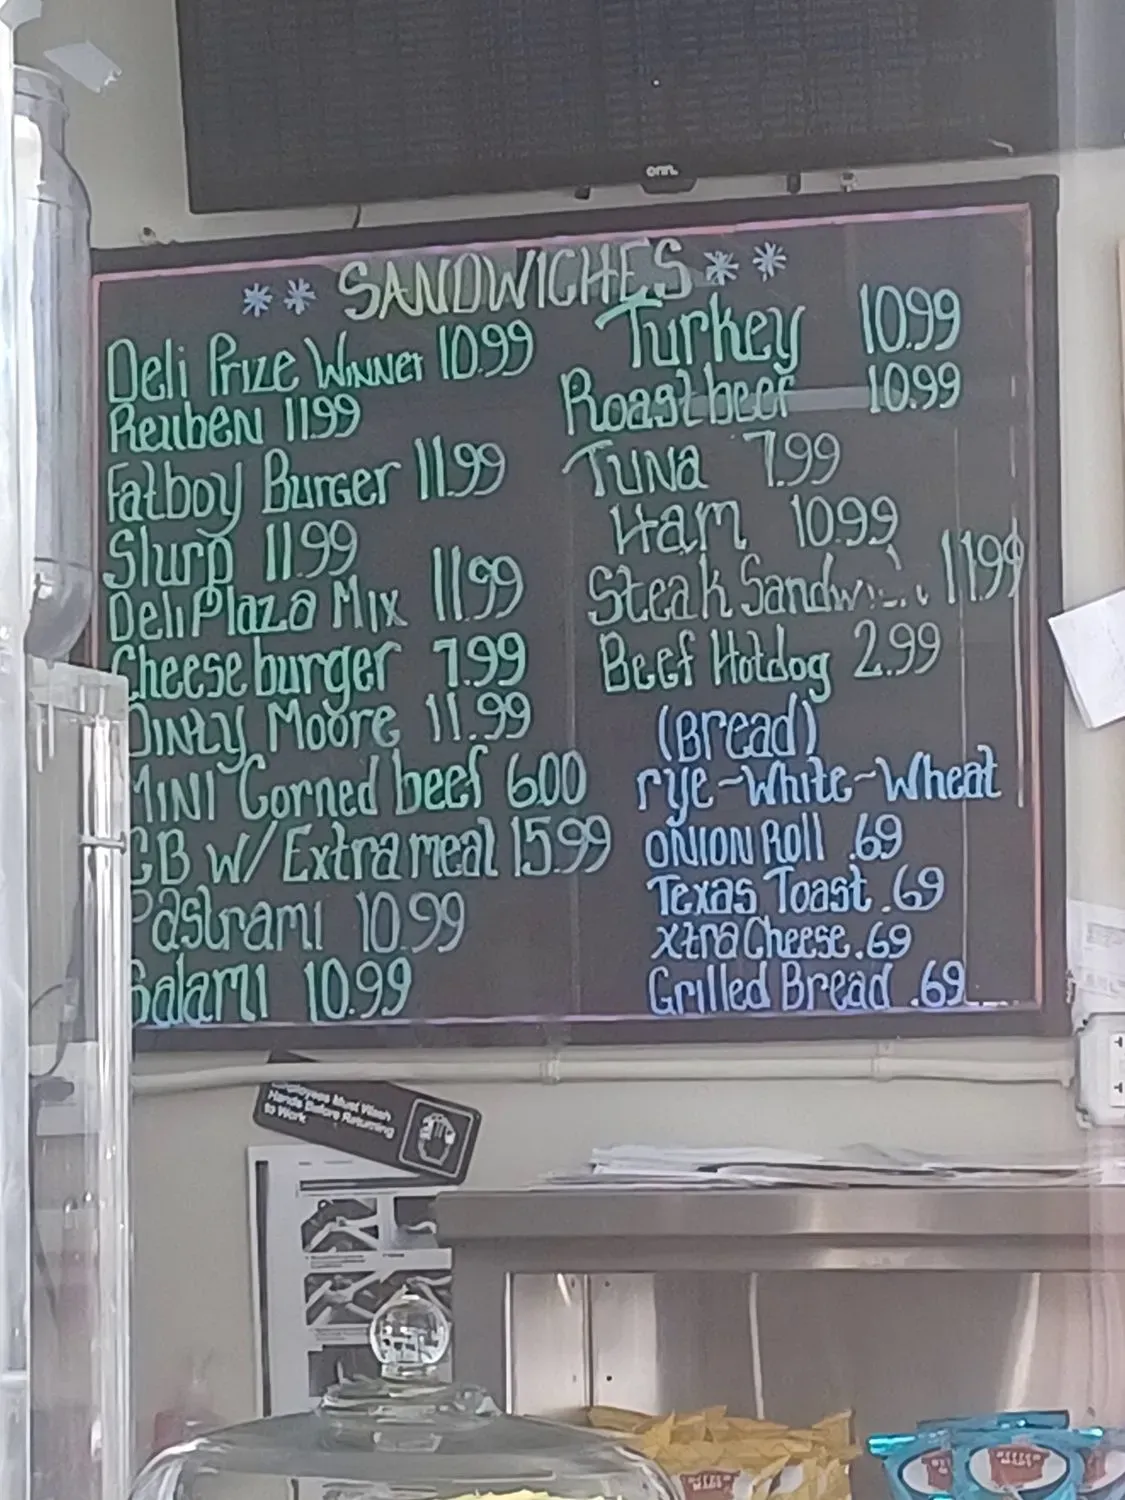 onn.
** SANDWICHES **
Deli Prize Winner 10.99
Reuben 11.99
Fatboy Burger 11.99
Slurp 11.99
Deli Plaza Mix 11.99
Cheeseburger 7.99
Dinty Moore 11.99
MINI Corned beef 6.00
CB w/ Extra meat 15.99
Pastrami 10.99
Salami 10.99
Turkey 10.99
Roastbeef 10.99
Tuna 7.99
Ham 10.99
Steak Sandwi 11.99
Beef Hotdog 2.99
(Bread)
rye-White-Wheat
Onion Roll .69
Texas Toast .69
Xtra Cheese .69
Grilled Bread .69
Employees Must Wash
Hands Before Returning
to Work
BETTER MADE
BETTER MADE